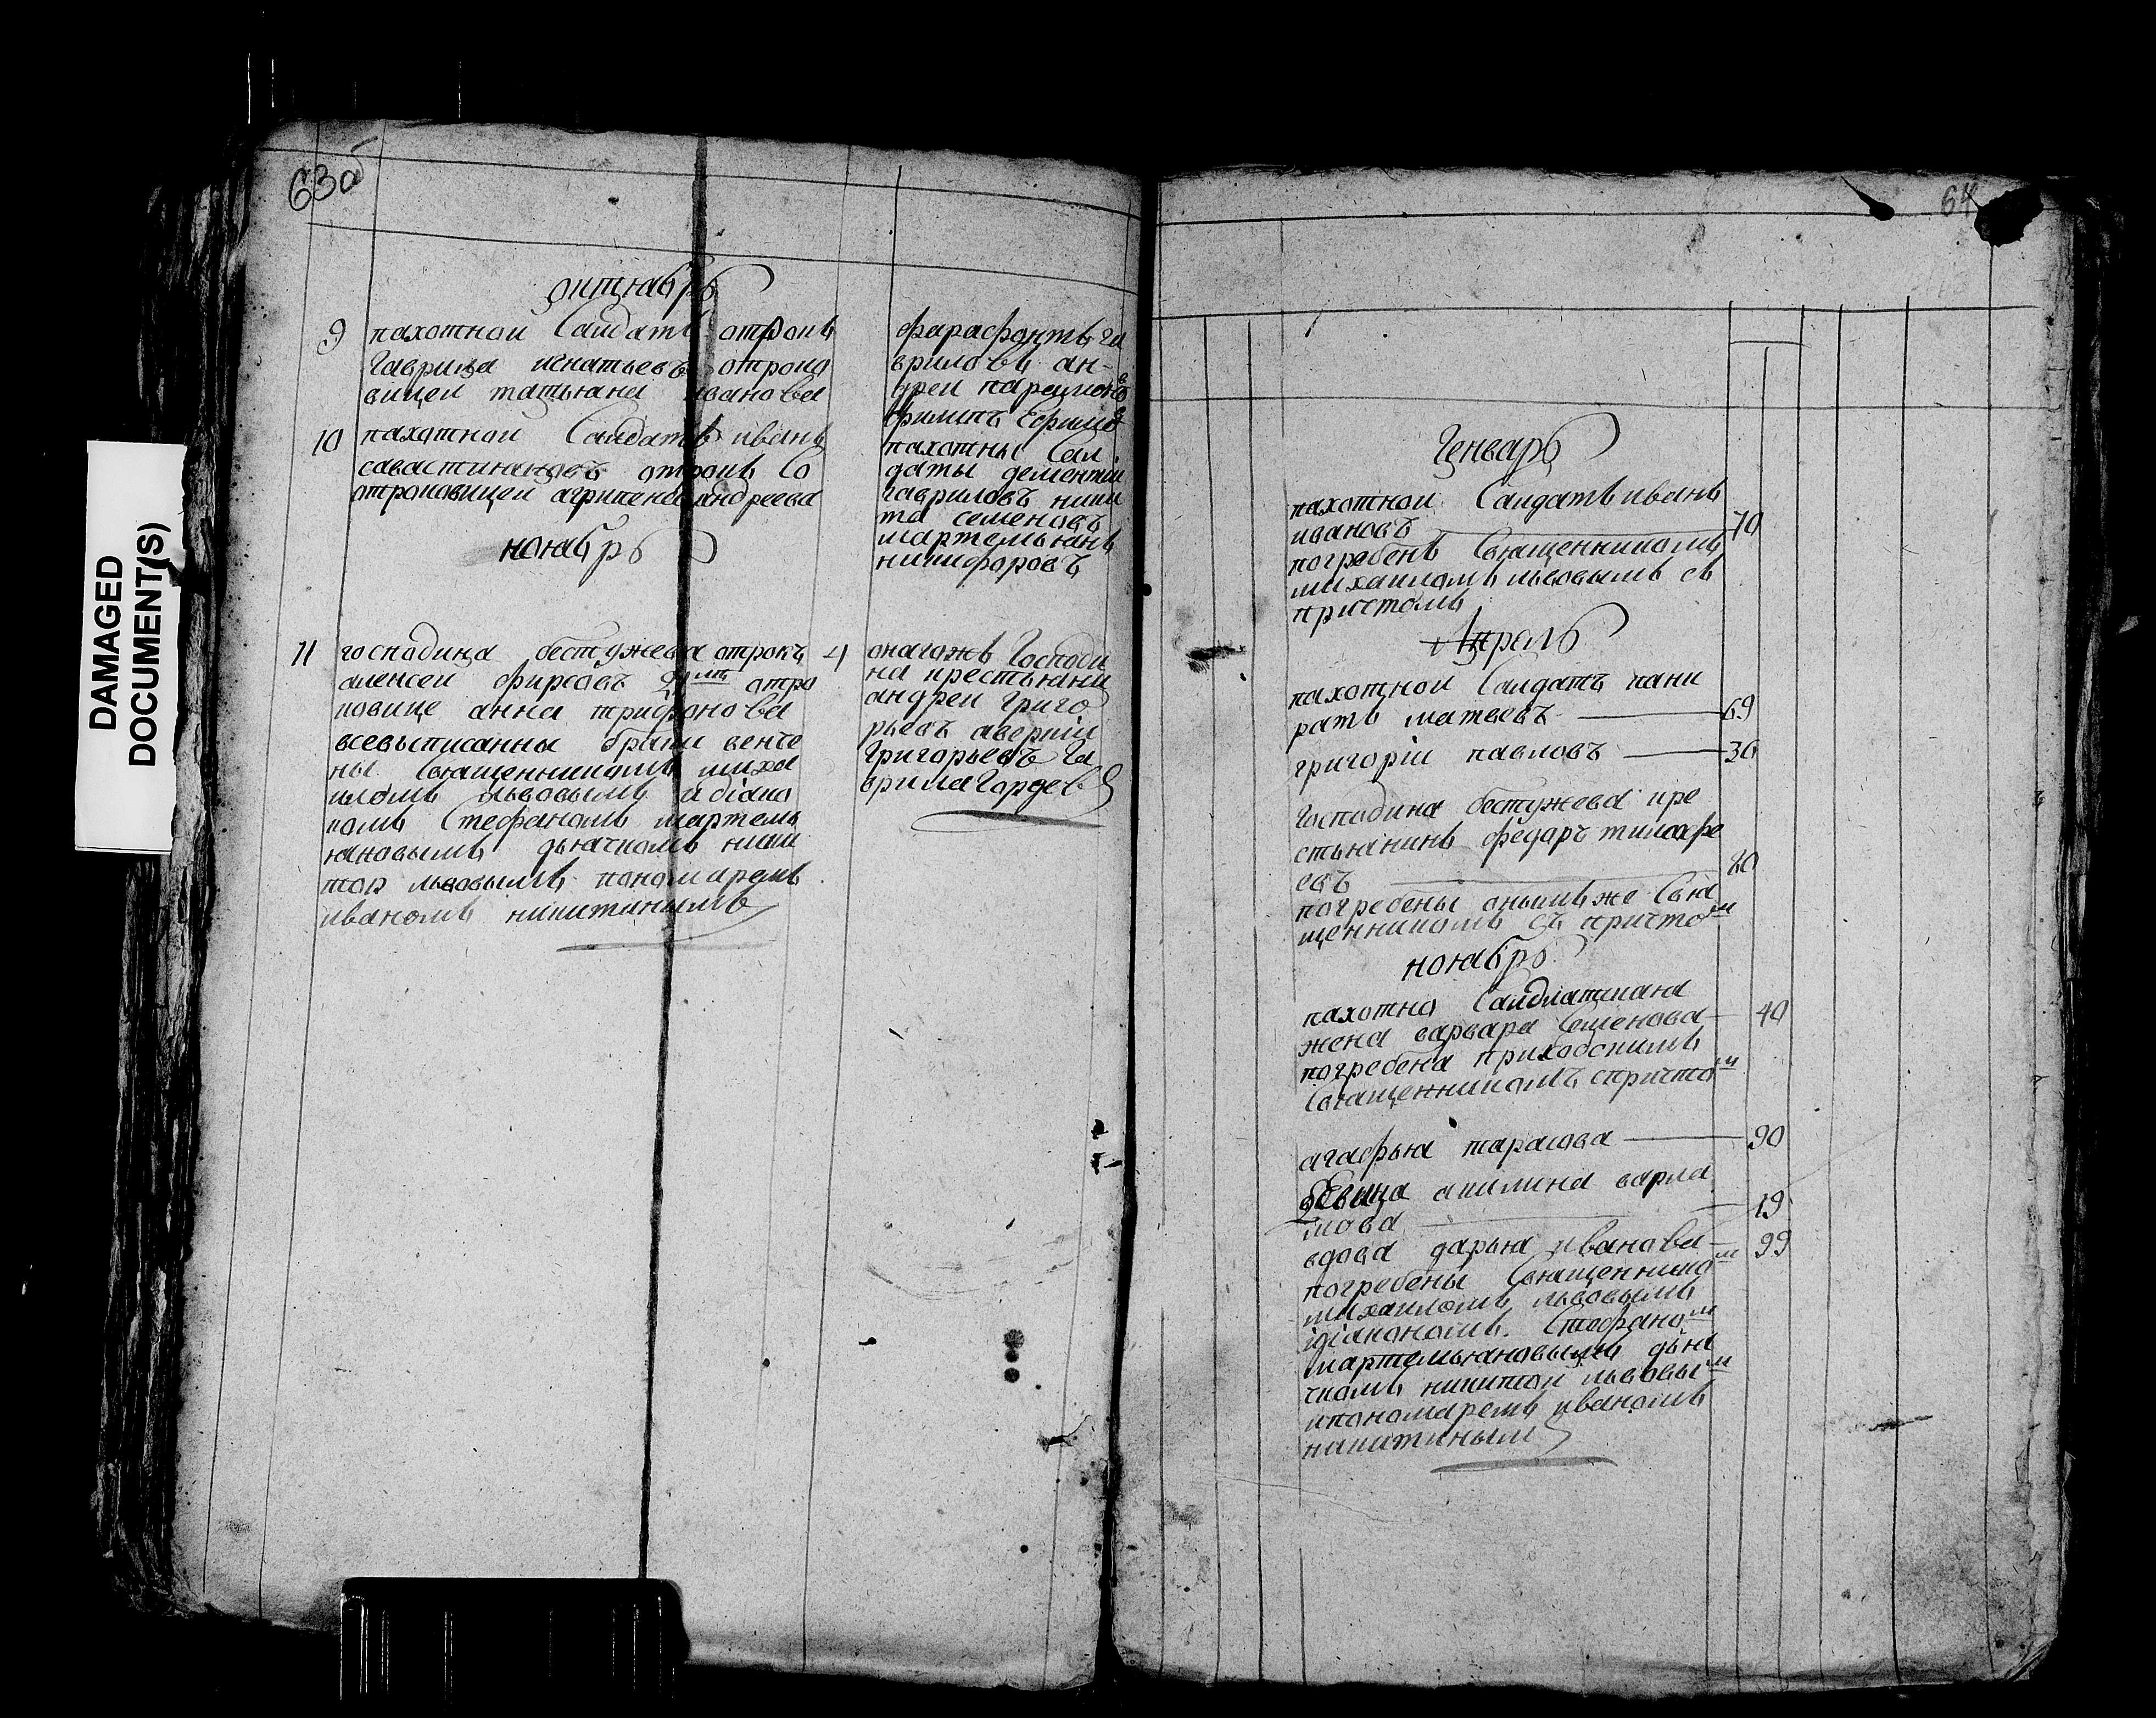 63об
октиабрь
9 пахотной Салдатъ отрокъ
Гаврила игнатьевъ отроко
вицей татьяна иванова
10 пахотной Салдатъ иванъ
савастияновъ отрокъ Со
отроковицей агрипена андреева
ноиабрь
11 господина бестужева отрокъ
алексеи фирсовъ отро
ковице анна трифонова
всевысписанны браки венче
ны Священникомъ миха
иломъ львовымъ идіако
номъ Стефаномъ мартемь
яновымъ дьячкомъ ники
тои львовымъ пономаремъ
иваномъ никитинымъ
фарафонтъ га
вриловъ ан-
дреи парамоновъ
филипъ Ефимовъ
пахотны Сал
даты дементіи
гавриловъ ники
та семеновъ
мартемьянъ
никифоровъ
онагожъ Господи
на крестьяни
андреи григо
рьевъ аверкіи
Григорьевъ Га
врила Гордеевъ
DAMAGED
DOCUMENT(S)
64
Генварь
пахотной Салдатъ иванъ
ивановъ 70
погребенъ Священникомъ
михаиломъ львовымъ съ
притчомъ
Апрель
пахотной Салдатъ панк
ратъ матвеевъ 69
григоріи павловъ 36
Господина бестужева кре
стьянинъ федаръ тимофе
евъ 80
погребены онымъ же Свя
щенникомъ съ причтомъ
ноиабрь
пахотно Салдацкая
жена варвара Семенова 40
погребена приходскимъ
Священникомъ спричтомъ
агафья тарасова 90
девица акилина варла
мова 19
вдова дарья иванова 99
погребены Священникомъ
михаиломъ львовымъ
ідіакономъ Стефаномъ
мартемьяновымъ дья
чкомъ никитои львовымъ
ипономаремъ иваномъ
никитинымъ